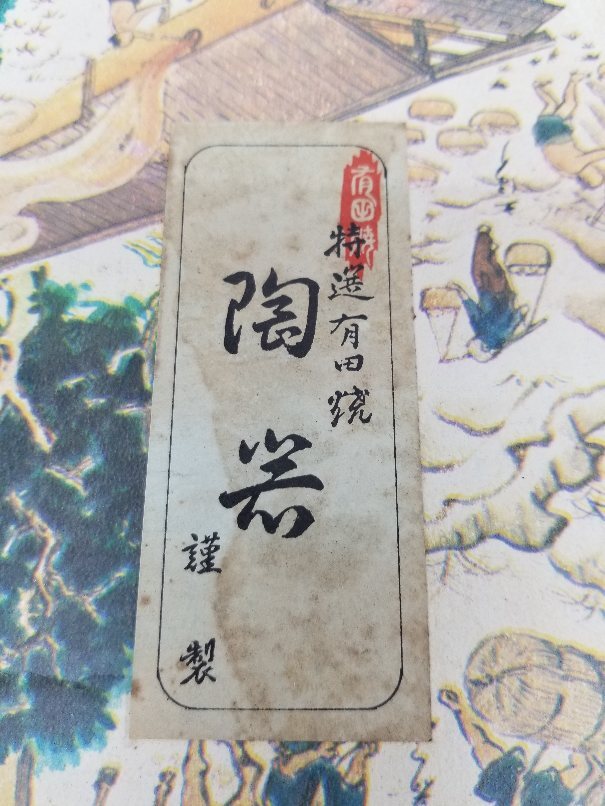 有田焼
特選有田焼
陶器
謹製